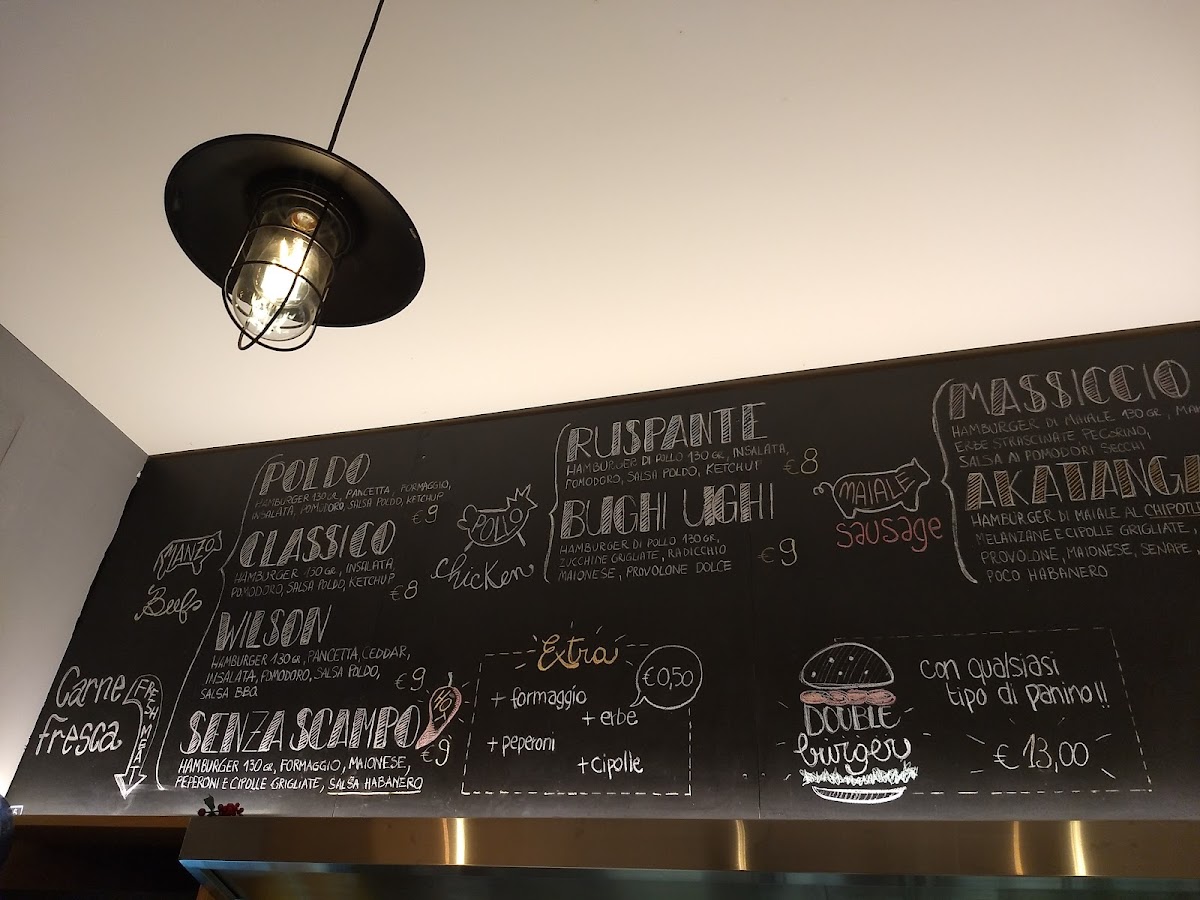 MANZO
Beef
Carne
fresca
FRESH MEAT
POLDO
HAMBURGER 130 GR, PANCETTA, FORMAGGIO,
INSALATA, POMODORO, SALSA POLDO, KETCHUP
€9
CLASSICO
HAMBURGER 130 gr, INSALATA,
POMODORO, SALSA POLDO, KETCHUP
€8
WILSON
HAMBURGER 130 gr, PANCETTA, CEDDAR,
INSALATA, POMODORO, SALSA POLDO,
SALSA BBQ
€9
SENZA SCAMPO
HOT
€9
HAMBURGER 130 gr, FORMAGGIO, MAIONESE,
PEPERONI E CIPOLLE GRIGLIATE, SALSA HABANERO
POLLO
chicken
RUSPANTE
HAMBURGER DI POLLO 130 gr, INSALATA,
POMODORO, SALSA POLDO, KETCHUP
€8
BUGHI UGHI
HAMBURGER DI POLLO 130 gr,
ZUCCHINE GRIGLIATE, RADICCHIO
MAIONESE, PROVOLONE DOLCE
€9
Extra
€0,50
+ formaggio
+ erbe
+ peperoni
+ cipolle
MAIALE
sausage
MASSICCIO
HAMBURGER DI MAIALE 130 GR,
ERBE STRASCINATE PECORINO,
SALSA AI POMODORI SECCHI
AKATANGA
HAMBURGER DI MAIALE AL CHIPOTLE
MELANZANE E CIPOLLE GRIGLIATE,
PROVOLONE, MAIONESE, SENAPE,
POCO HABANERO
DOUBLE
burger
con qualsiasi
tipo di panino!!
€ 13,00